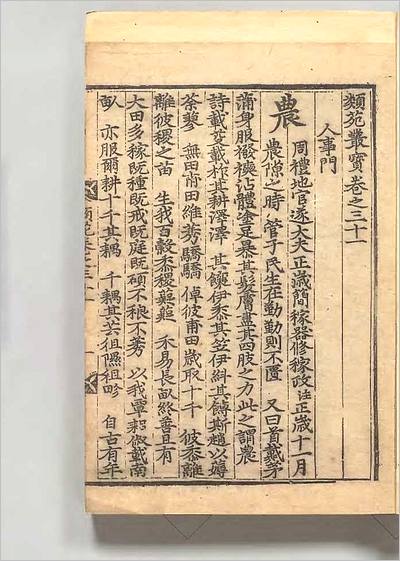 類苑叢寶卷之三十一
人事門
農 周禮地官遂大夫正歲簡稼器修稼政注正歲十一月
農隙之時 管子民生在勤勤則不匱 又曰首戴茅
蒲身服襏襫沾體塗足暴其髮膚盡其四肢之力此之謂農
詩載芟載柞其耕澤澤 其饟伊黍其笠伊糾其鎛斯趙以薅
荼蓼 無田甫田維莠驕驕 倬彼甫田歲取十千 彼黍離
離彼稷之苗 生我百穀黍稷 禾易長畝終善且有
大田多稼既種既戒既庭既碩不稂不莠 以我覃耜俶載南
畝 亦服爾耕十千其耦 千耦其芸徂隰徂畛 自古有年